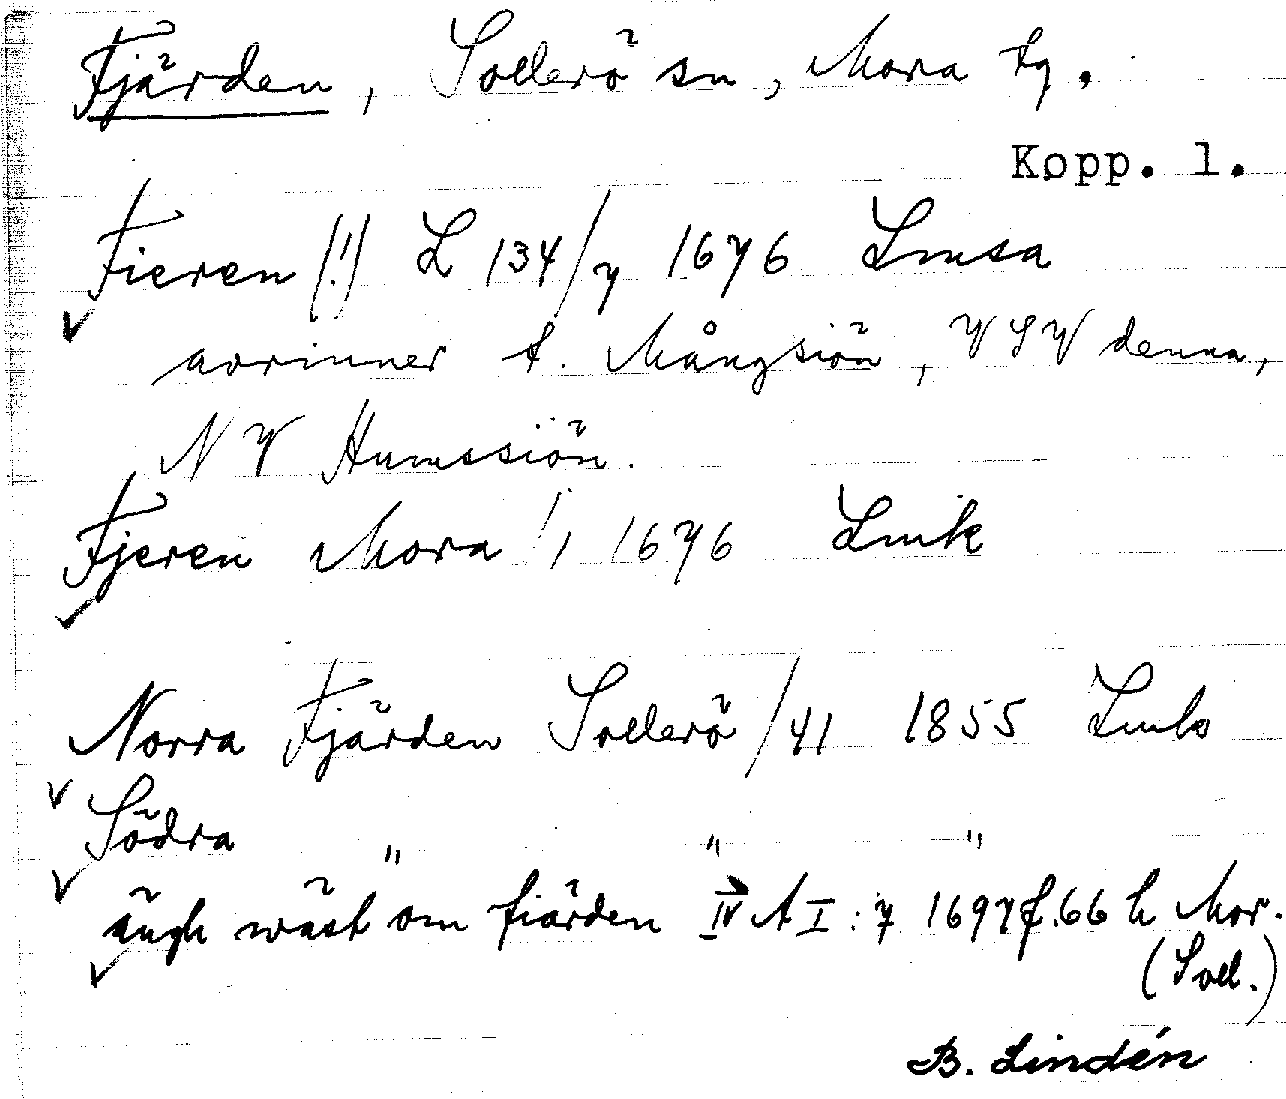 Fjärden, Sollerö sn, Mora tg.
Kopp. l.
Fieren (!) L 134/7 1676 Lmsa
avrinner t. Mångsiön, VSV denna,
NV Humssiön.
Fjeren Mora /1 1676 Lmk
Norra Fjärden Sollerö /41 1855 Lmk
Södra " " "
ängh wäst om fiärden IV A I:7 1697 f.66 h Mor.
(Soll.)
B. Lindén